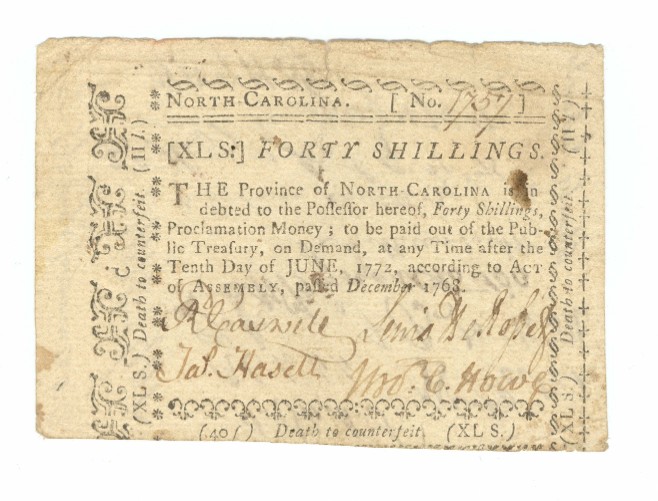 NORTH-CAROLINA. [ No. 1757 ]
[XL S:] FORTY SHILLINGS.
THE Province of NORTH-CAROLINA is in
debted to the Poſſeſſor hereof, Forty Shillings,
Proclamation Money; to be paid out of the Pub-
lic Treaſury, on Demand, at any Time after the
Tenth Day of JUNE, 1772, according to ACT
of ASSEMBLY, paſſed December 1768.
Rd Caswell Lewis De Roſſet
Jas. Hasell Jno. C. Howe
(XL S.) Death to counterfeit. (II l.)
Death to counterfeit. (II l.)
(XL S.)
(40 ſ) Death to counterfeit (XL S.)